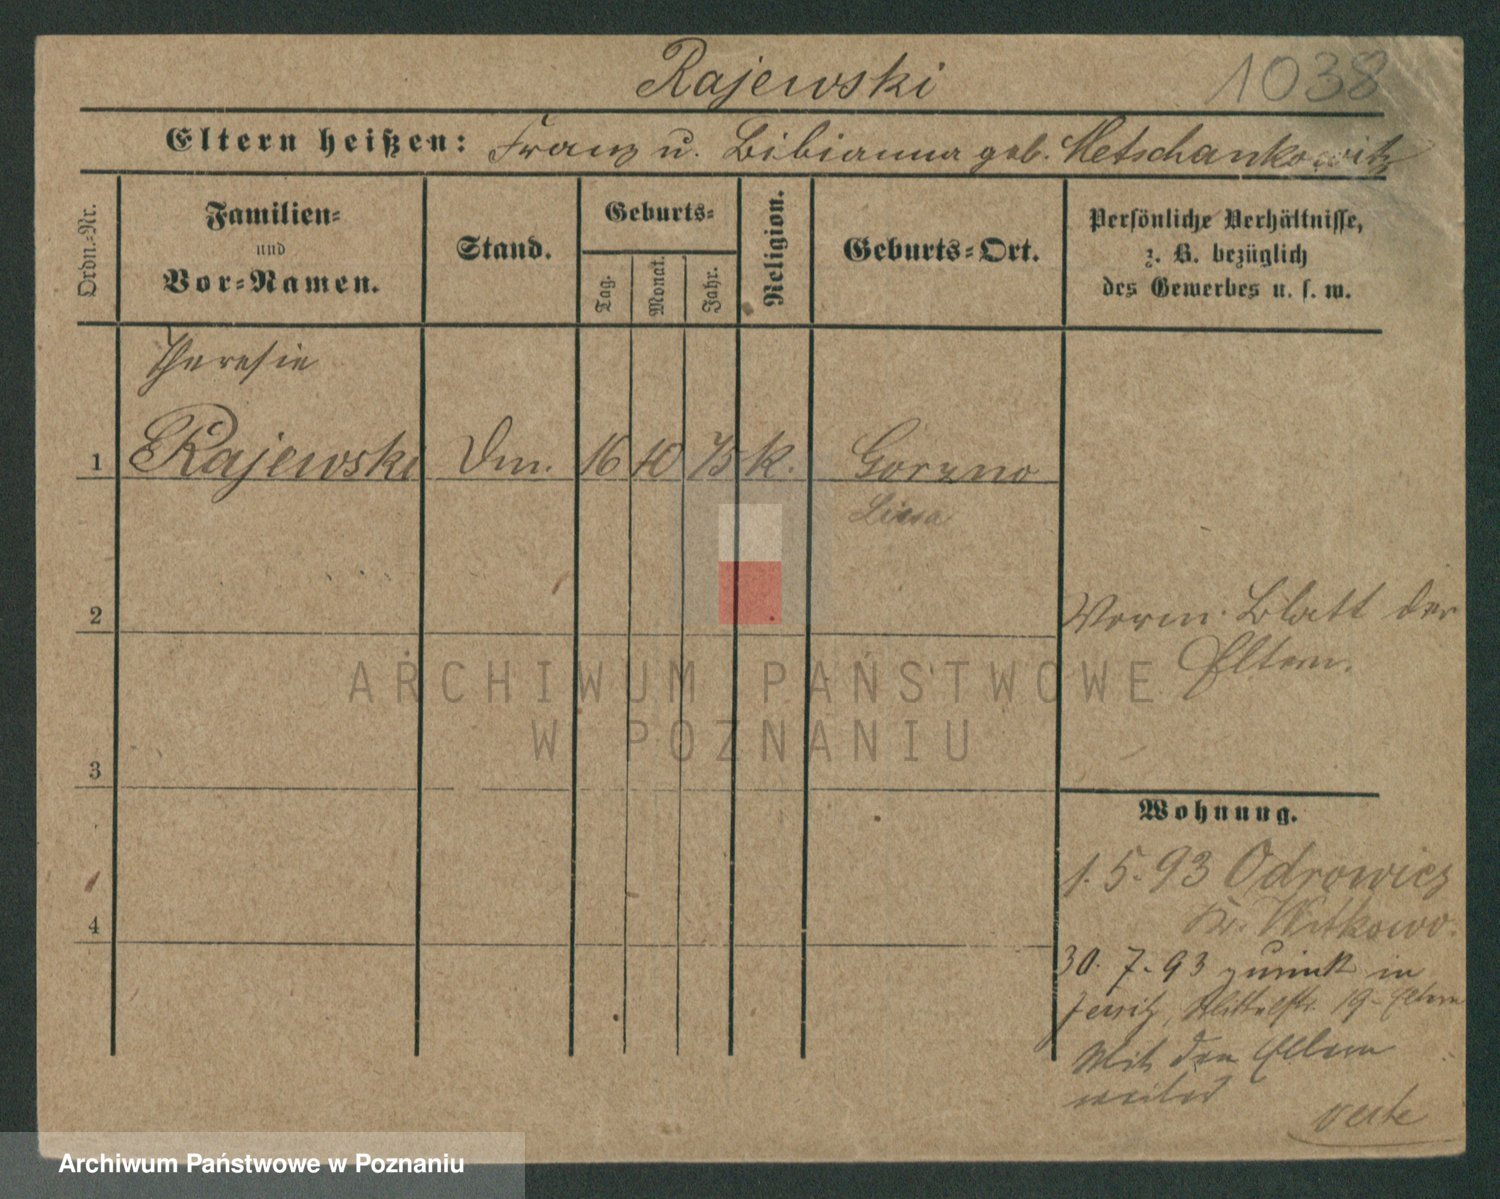 Rajewski 1038
Eltern heißen: Franz u. Bibianna geb. Metschankowitz
Ordn.-Nr.
Familien-
und
Vor-Namen.
Stand.
Geburts-
Tag.
Monat.
Jahr.
Religion.
Geburts-Ort.
Persönliche Verhältnisse,
z. B. bezüglich
des Gewerbes u. s. w.
Theresie
1 Rajewski Dm. 16 10 75 k. Gorzno
Lissa
2
Vorm. Blatt der
Eltern.
3
4
Wohnung.
1. 5. 93 Odrowicz
Kr. Witkowo.
30. 7. 93 zurück in
Jersitz, 19 Eltern
Mit den Eltern
verte
ARCHIWUM PAŃSTWOWE
W POZNANIU
Archiwum Państwowe w Poznaniu